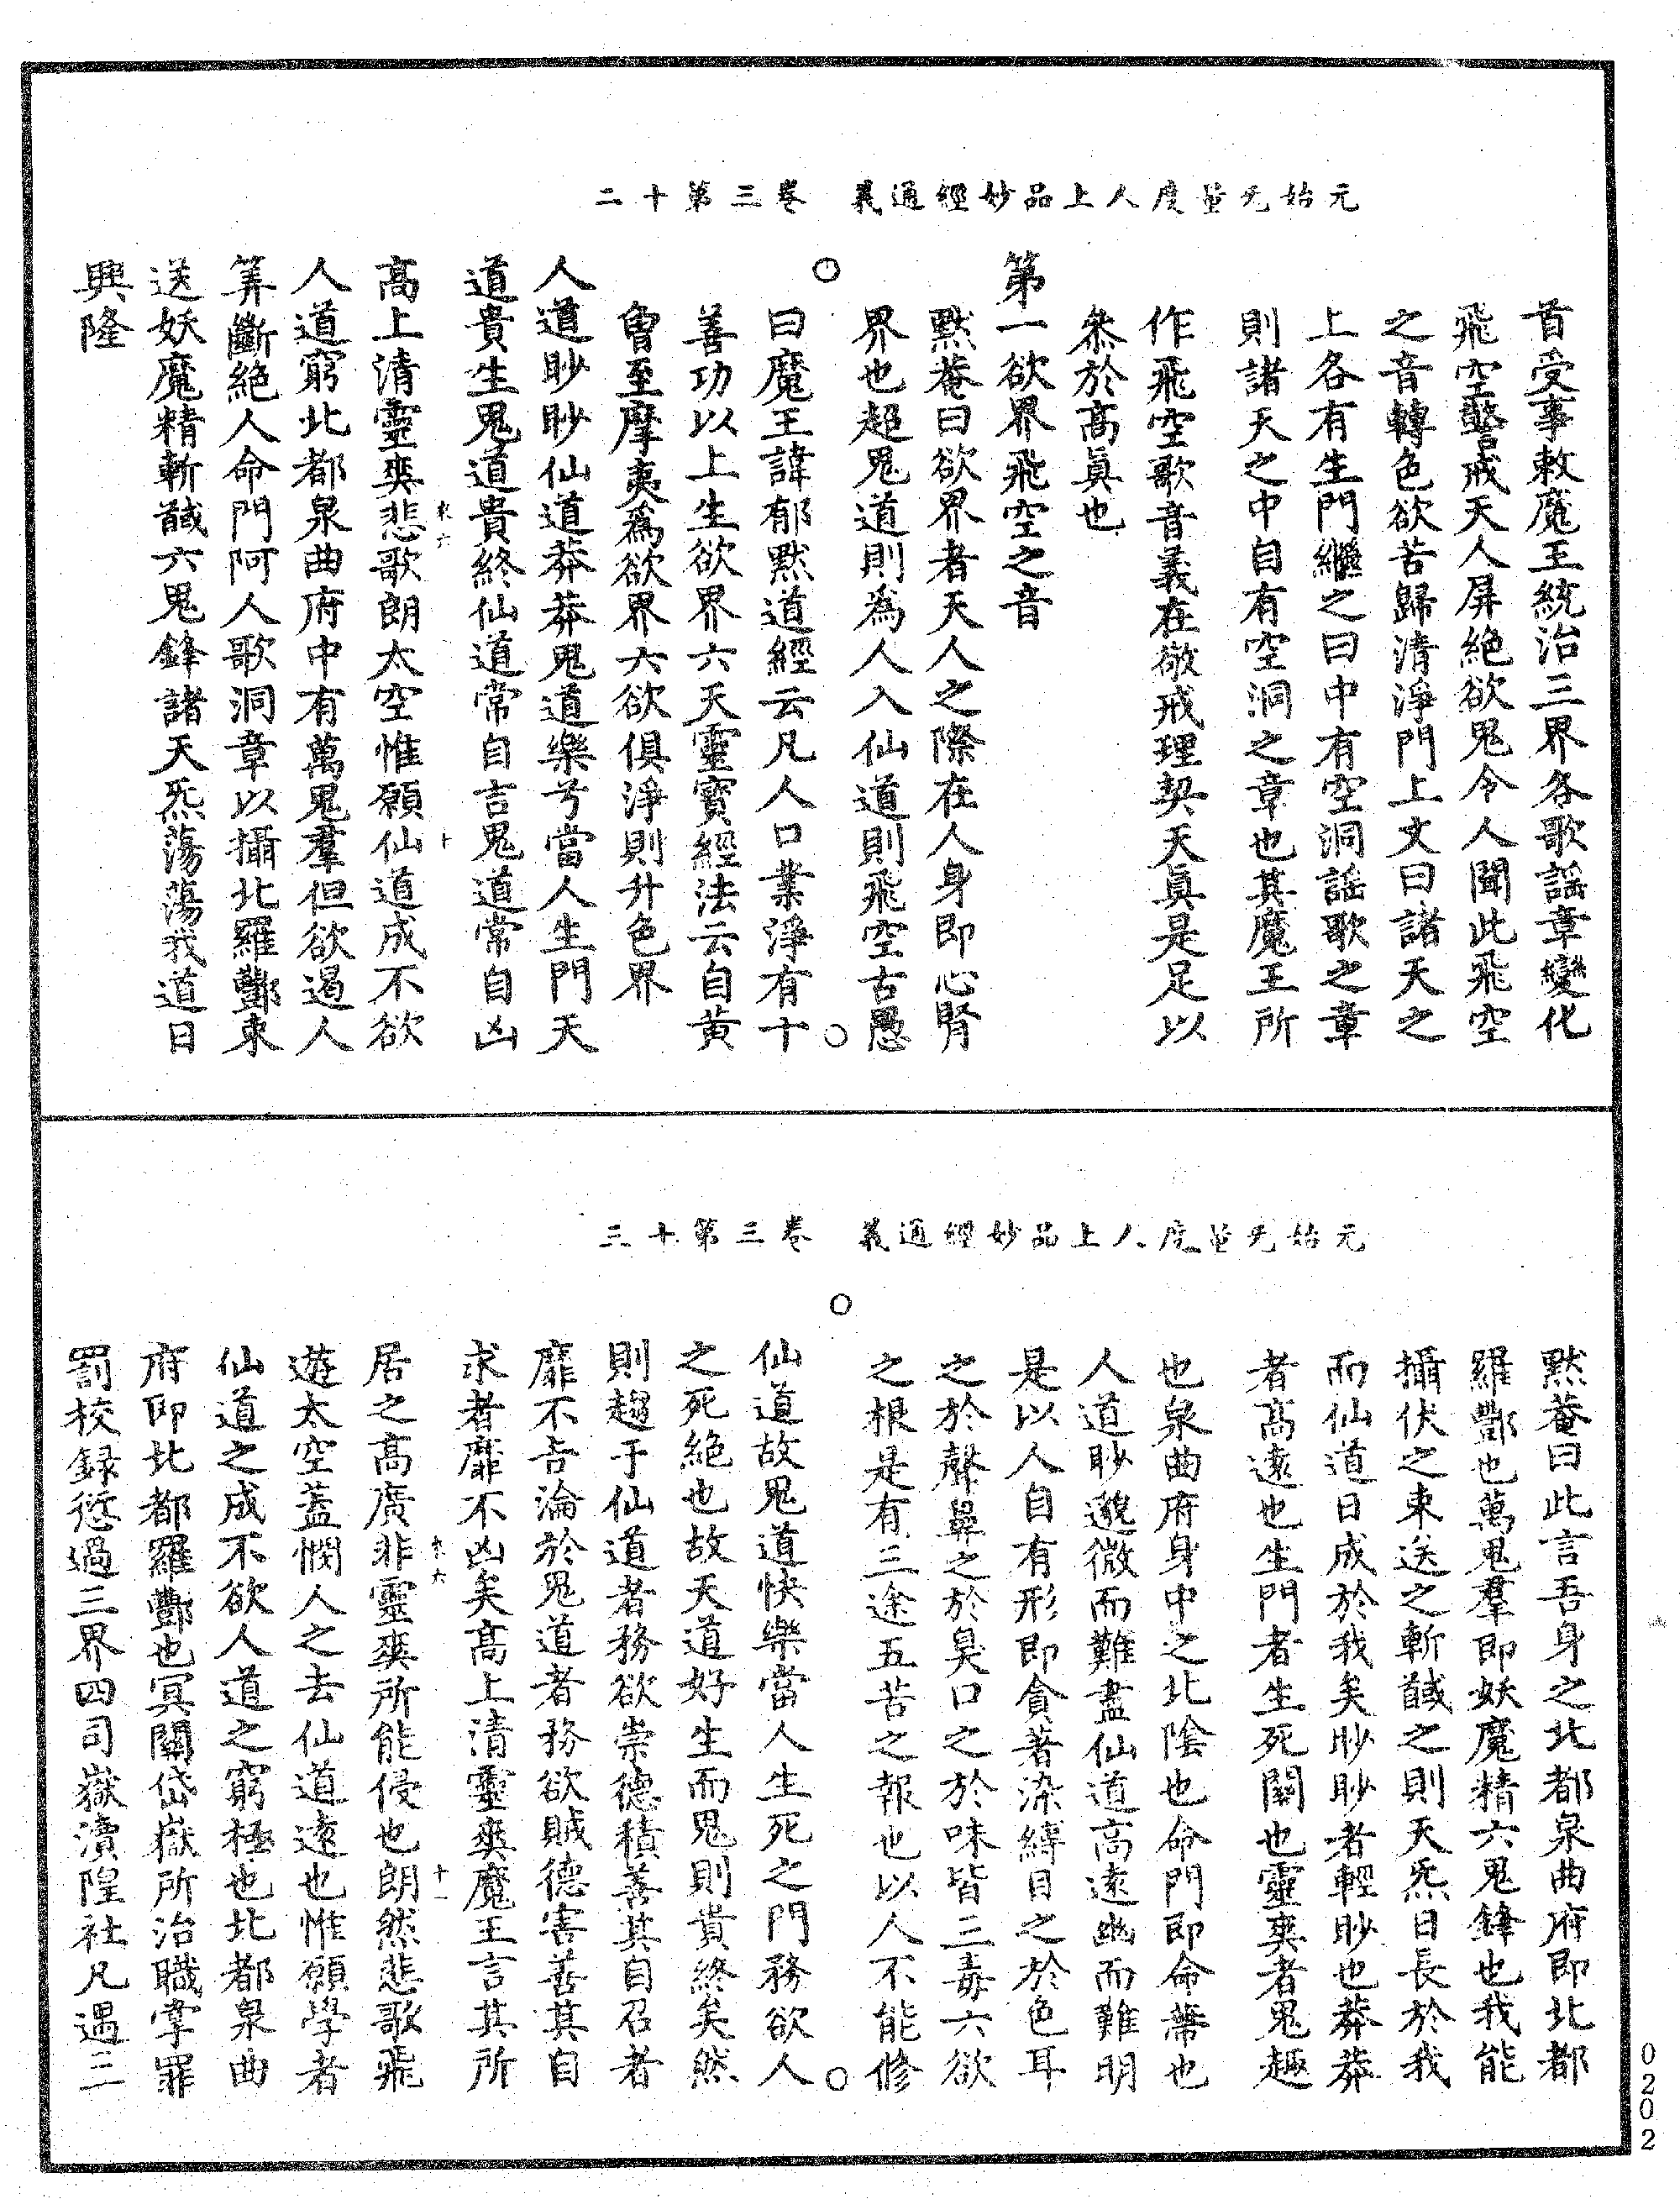 元始无量度人上品妙經通義　卷三第十二
首受事敕魔王統治三界各歌謡章變化
飛空警戒天人屏絶欲鬼令人聞此飛空
之音轉色欲苦歸清淨門上文曰諸天之
上各有生門繼之曰中有空洞謡歌之章
則諸天之中自有空洞之章也其魔王所
作飛空歌音義在敬戒理契天眞是足以
叅於髙眞也
第一欲界飛空之音
黙菴曰欲界者天人之際在人身即心腎
界也超鬼道則爲人入仙道則飛空古愚
曰魔王諱郁黙道經云凡人口業淨有十
善功以上生欲界六天靈寳經法云自黄
曾至摩夷爲欲界六欲俱淨則升色界
人道眇眇仙道莽莽鬼道樂兮當人生門天
道貴生鬼道貴終仙道常自吉鬼道常自凶
高上清靈爽悲歌朗太空惟願仙道成不欲
人道窮北都泉曲府中有萬鬼羣但欲遏人
筭斷絶人命門阿人歌洞章以攝北羅酆束
送妖魔精斬馘六鬼鋒諸天炁蕩蕩我道日
興隆
來六
十
元始无量度人上品妙經通義　卷三第十三
黙菴曰此言吾身之北都泉曲府即北都
羅酆也萬鬼羣即妖魔精六鬼鋒也我能
攝伏之束送之斬馘之則天炁日長於我
而仙道日成於我矣眇眇者輕眇也莽莽
者髙逺也生門者生死關也靈爽者鬼趣
也泉曲府身中之北陰也命門即命蔕也
人道眇邈微而難盡仙道高逺幽而難明
是以人自有形即貪著染縛目之於色耳
之於聲鼻之於臭口之於味皆三毒六欲
之根是有三途五苦之報也以人不能修
仙道故鬼道快樂當人生死之門務欲人
之死絶也故天道好生而鬼則貴終矣然
則趨于仙道者務欲崇德積善其自召者
靡不吉淪於鬼道者務欲賊德害善其自
求者靡不凶矣高上清靈爽魔王言其所
居之高廣非靈爽所能侵也朗然悲歌飛
遊太空蓋憫人之去仙道逺也惟願學者
仙道之成不欲人道之窮極也北都泉曲
府即北都羅酆也冥關岱嶽所治職掌罪
罰校録愆過三界四司嶽瀆隍社凡遇三
來六
十一
0202